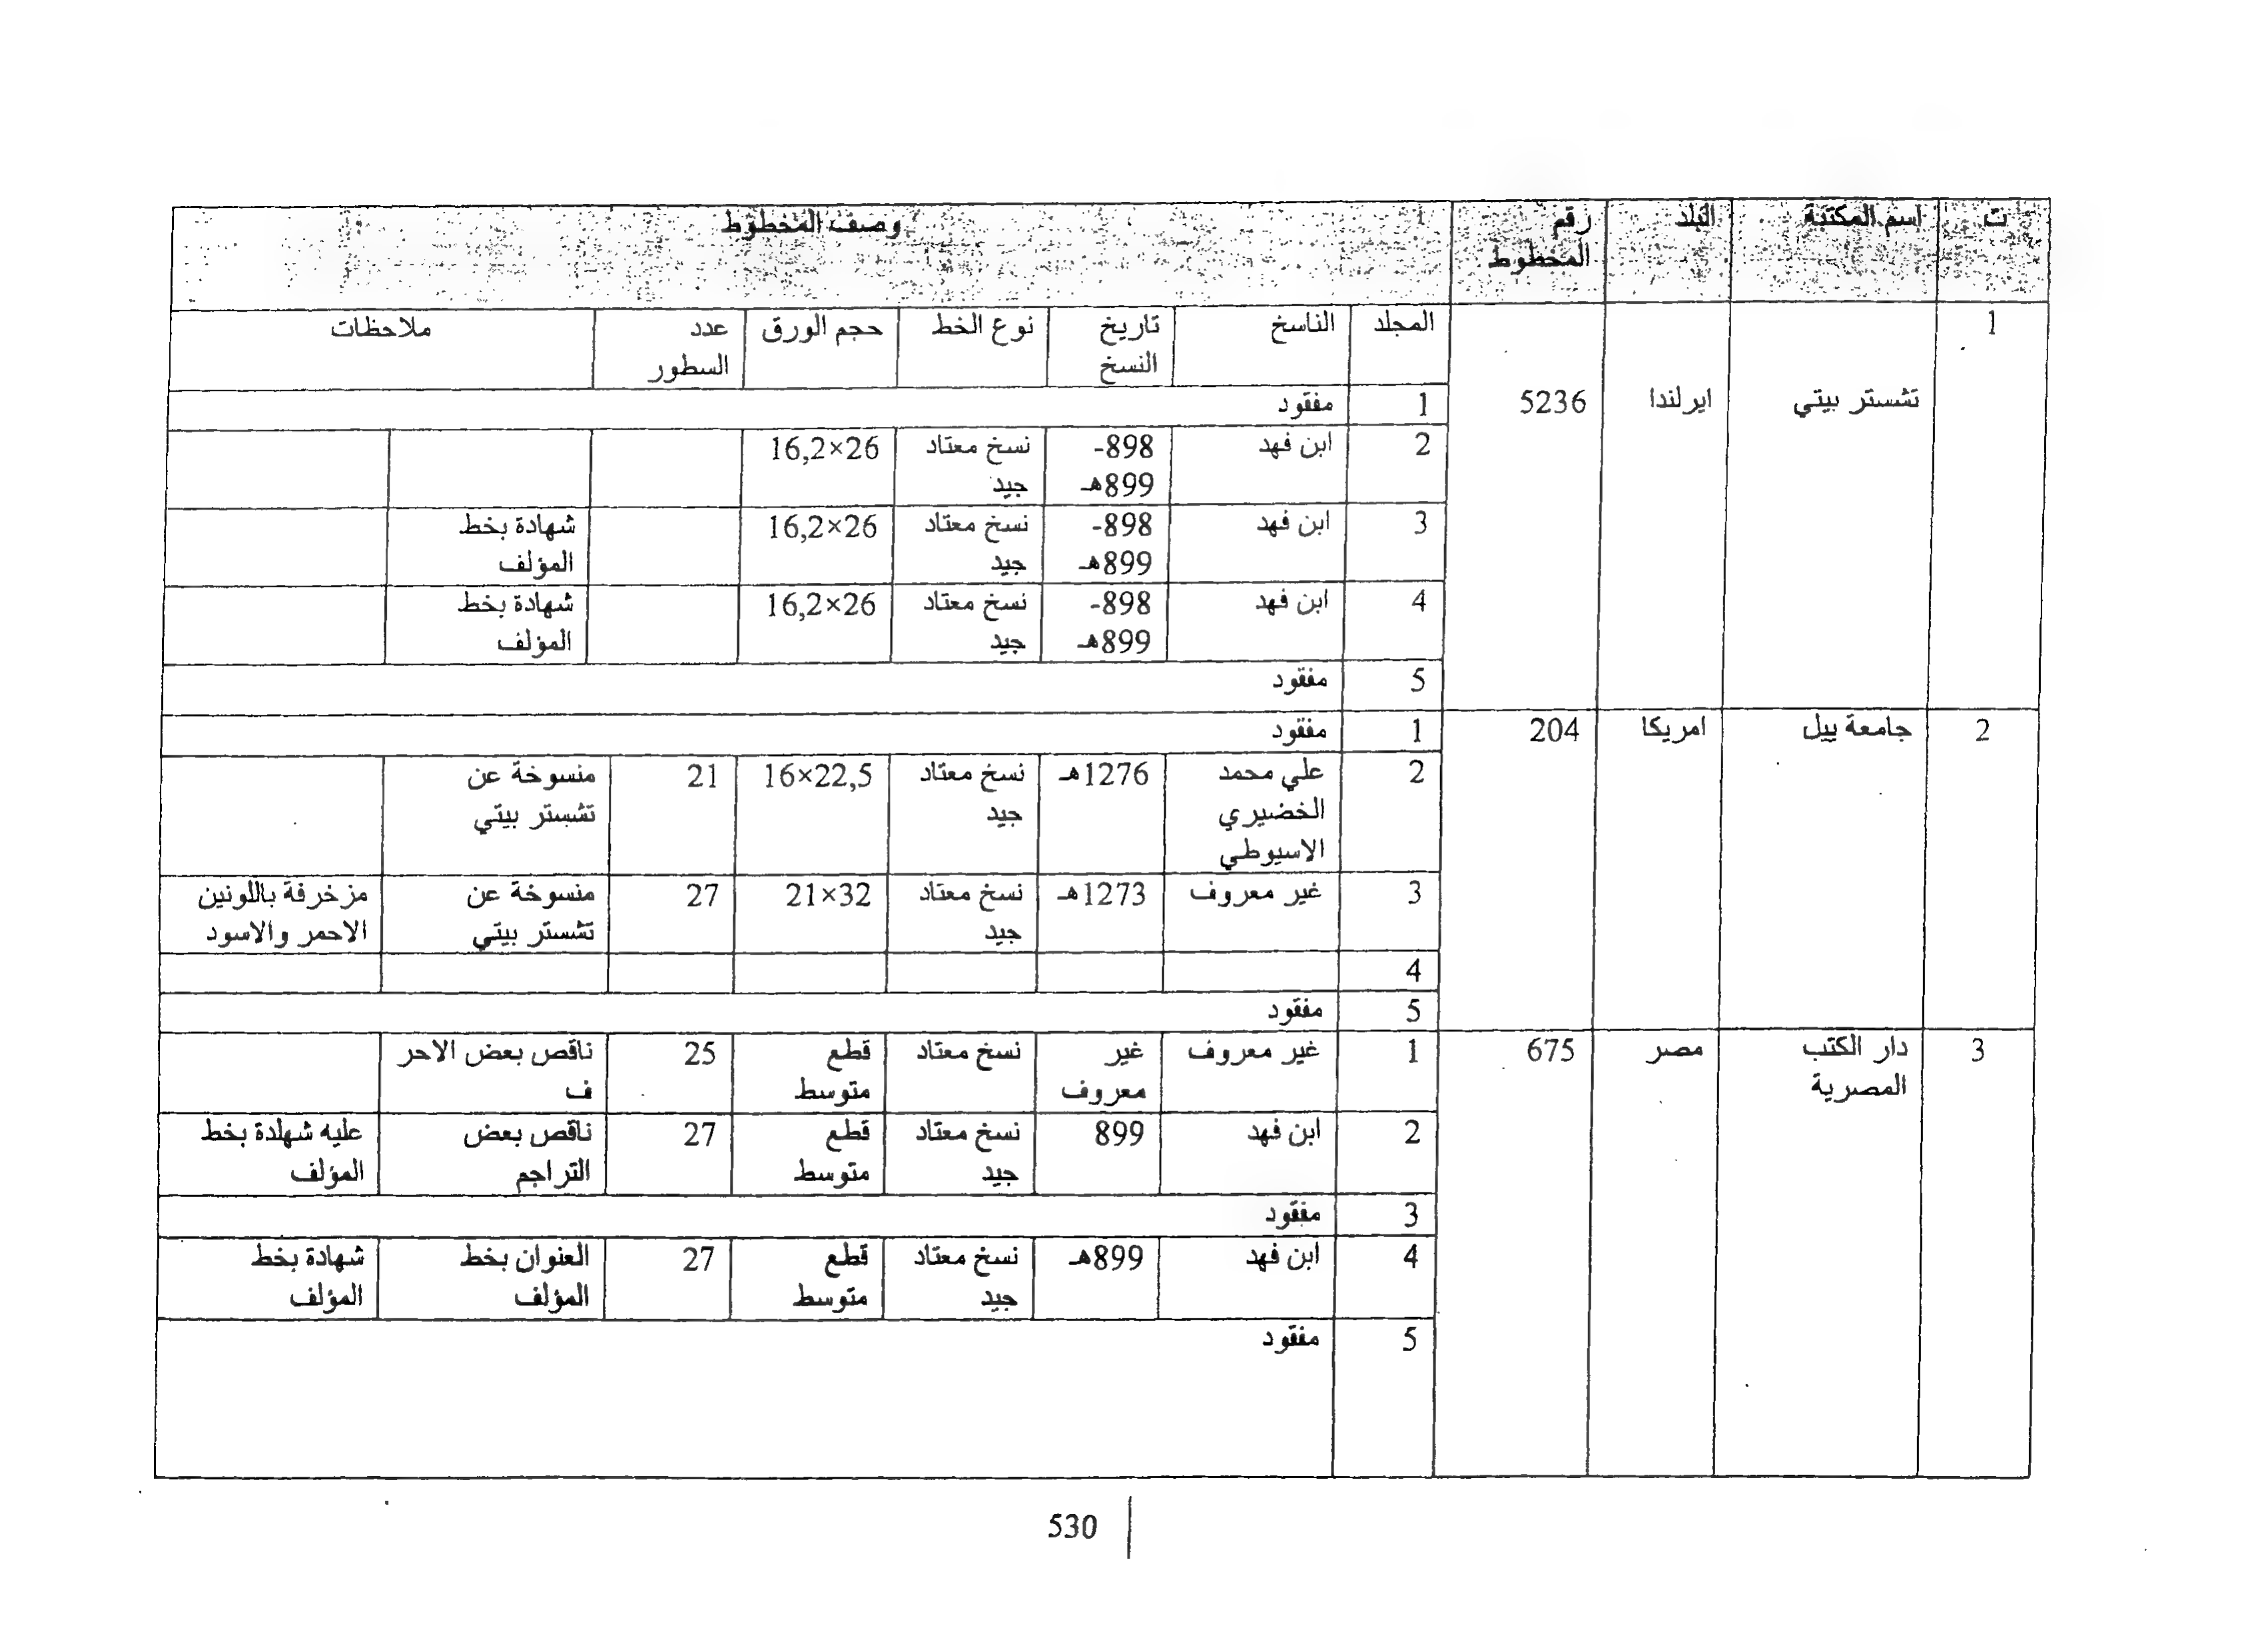 ت اسم المكتبة البلد رقم المخطوط وصف المخطوط
1 تشستر بيتي ايرلندا 5236 المجلد الناسخ تاريخ النسخ نوع الخط حجم الورق عدد السطور ملاحظات
1 مفقود
2 ابن فهد 898-899هـ نسخ معتاد جيد 16,2×26
3 ابن فهد 898-899هـ نسخ معتاد جيد 16,2×26 شهادة بخط المؤلف
4 ابن فهد 898-899هـ نسخ معتاد جيد 16,2×26 شهادة بخط المؤلف
5 مفقود
2 جامعة ييل امريكا 204 1 مفقود
2 علي محمد الخضيري الاسيوطي 1276هـ نسخ معتاد جيد 16×22,5 21 منسوخة عن تشستر بيتي
3 غير معروف 1273هـ نسخ معتاد جيد 21×32 27 منسوخة عن تشستر بيتي مزخرفة باللونين الاحمر والاسود
4
5 مفقود
3 دار الكتب المصرية مصر 675 1 غير معروف غير معروف نسخ معتاد قطع متوسط 25 ناقص بعض الاحر ف
2 ابن فهد 899 نسخ معتاد جيد قطع متوسط 27 ناقص بعض التراجم عليه شهلدة بخط المؤلف
3 مفقود
4 ابن فهد 899هـ نسخ معتاد جيد قطع متوسط 27 العنوان بخط المؤلف شهادة بخط المؤلف
5 مفقود
530